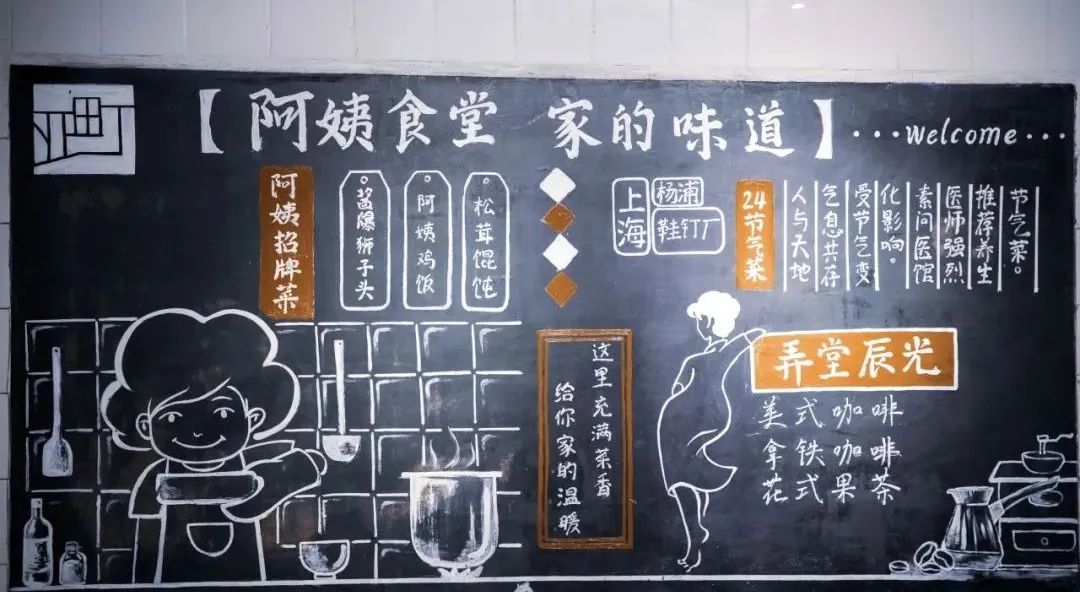 【阿姨食堂 家的味道】···welcome···
阿姨招牌菜
狮子头
阿姨鸡饭
松茸馄饨
上海
杨浦
鞋钉厂
24节气菜
人与天地
气息共存
受节气变
化影响。
素问医馆
医师强烈
推荐养生
节气菜。
这里充满菜香
给你家的温暖
弄堂辰光
美式咖啡
拿铁咖啡
花式果茶